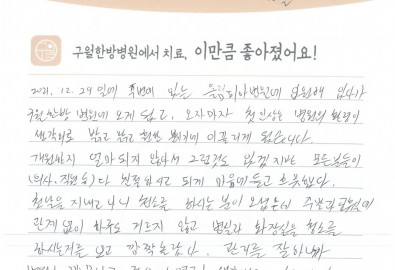 구월한방병원에서 치료, 이만큼 좋아졌어요!
2021. 12. 29일에 주변에 있는 올림피아병원에 입원해 있다가
구월한방 병원에 오게 됐고, 오자마자 첫인상은 병원의 환경이
생각외로 밝고 맑고 환한 분위기에 이끌리게 됬습니다.
개원한지 얼마 되지 않아서 그런것도 있겠지만 모든분들이
(의사, 직원 등) 다 친절하시고 되게 마음에 들고 흐뭇했다.
첫날을 지내고 나니 청소를 하시는 분이 오셨는데 주말과
관계없이 하루도 거르지 않고 병실과 화장실을 청소를
하시는거를 보고 깜짝 놀랐다. 관리를 잘하니까